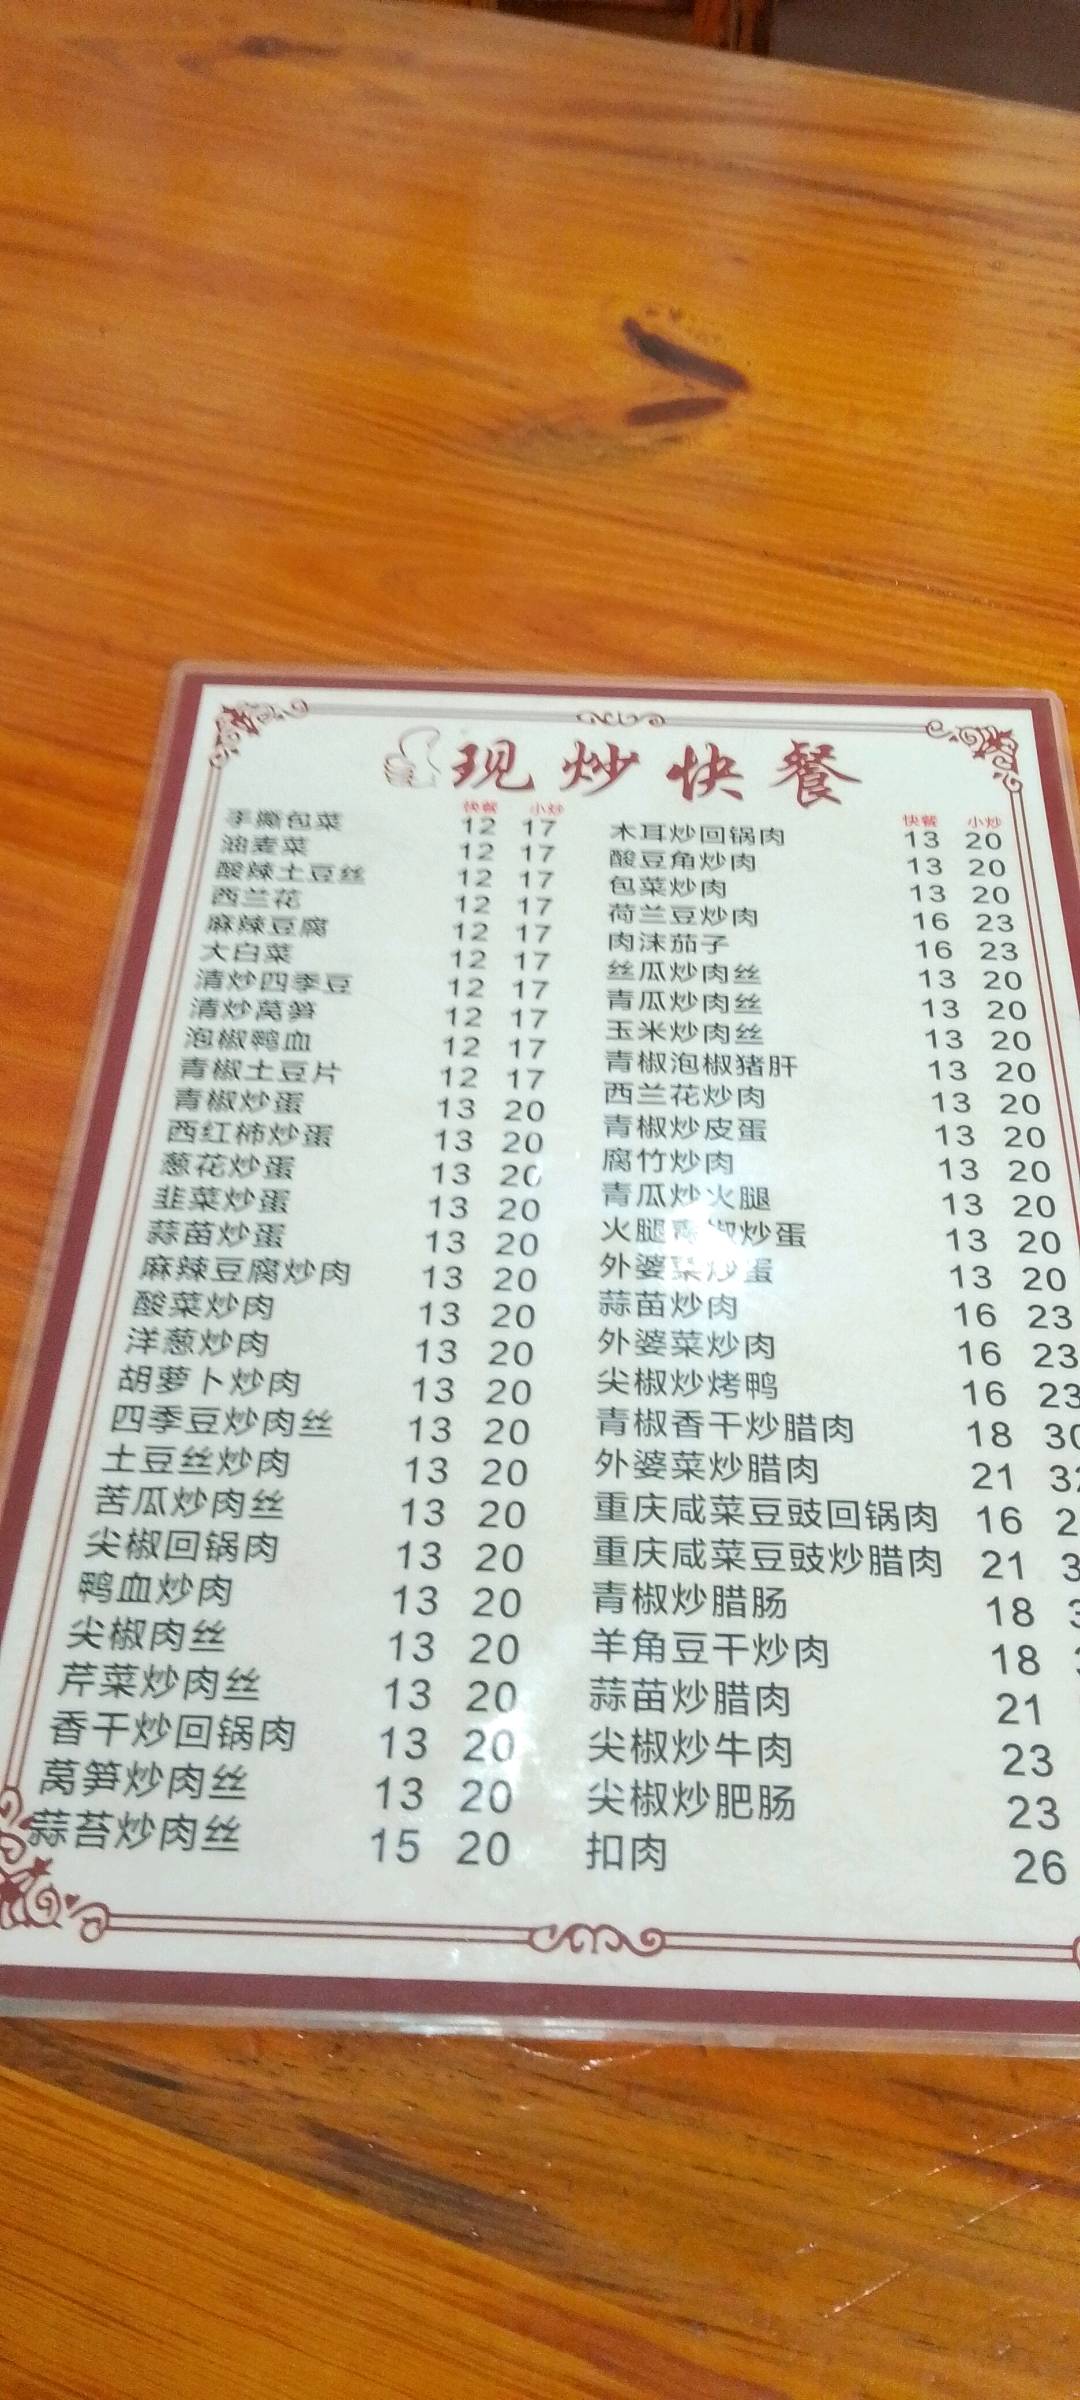 现炒快餐
快餐 小炒
手撕包菜 12 17
油麦菜 12 17
酸辣土豆丝 12 17
西兰花 12 17
麻辣豆腐 12 17
大白菜 12 17
清炒四季豆 12 17
清炒莴笋 12 17
泡椒鸭血 12 17
青椒土豆片 12 17
青椒炒蛋 13 20
西红柿炒蛋 13 20
葱花炒蛋 13 20
韭菜炒蛋 13 20
蒜苗炒蛋 13 20
麻辣豆腐炒肉 13 20
酸菜炒肉 13 20
洋葱炒肉 13 20
胡萝卜炒肉 13 20
四季豆炒肉丝 13 20
土豆丝炒肉 13 20
苦瓜炒肉丝 13 20
尖椒回锅肉 13 20
鸭血炒肉 13 20
尖椒肉丝 13 20
芹菜炒肉丝 13 20
香干炒回锅肉 13 20
莴笋炒肉丝 13 20
蒜苔炒肉丝 15 20
快餐 小炒
木耳炒回锅肉 13 20
酸豆角炒肉 13 20
包菜炒肉 13 20
荷兰豆炒肉 16 23
肉沫茄子 16 23
丝瓜炒肉丝 13 20
青瓜炒肉丝 13 20
玉米炒肉丝 13 20
青椒泡椒猪肝 13 20
西兰花炒肉 13 20
青椒炒皮蛋 13 20
腐竹炒肉 13 20
青瓜炒火腿 13 20
火腿青椒炒蛋 13 20
外婆菜炒蛋 13 20
蒜苗炒肉 16 23
外婆菜炒肉 16 23
尖椒炒烤鸭 16 23
青椒香干炒腊肉 18 30
外婆菜炒腊肉 21 32
重庆咸菜豆豉回锅肉 16 2
重庆咸菜豆豉炒腊肉 21 3
青椒炒腊肠 18 3
羊角豆干炒肉 18
蒜苗炒腊肉 21
尖椒炒牛肉 23
尖椒炒肥肠 23
扣肉 26